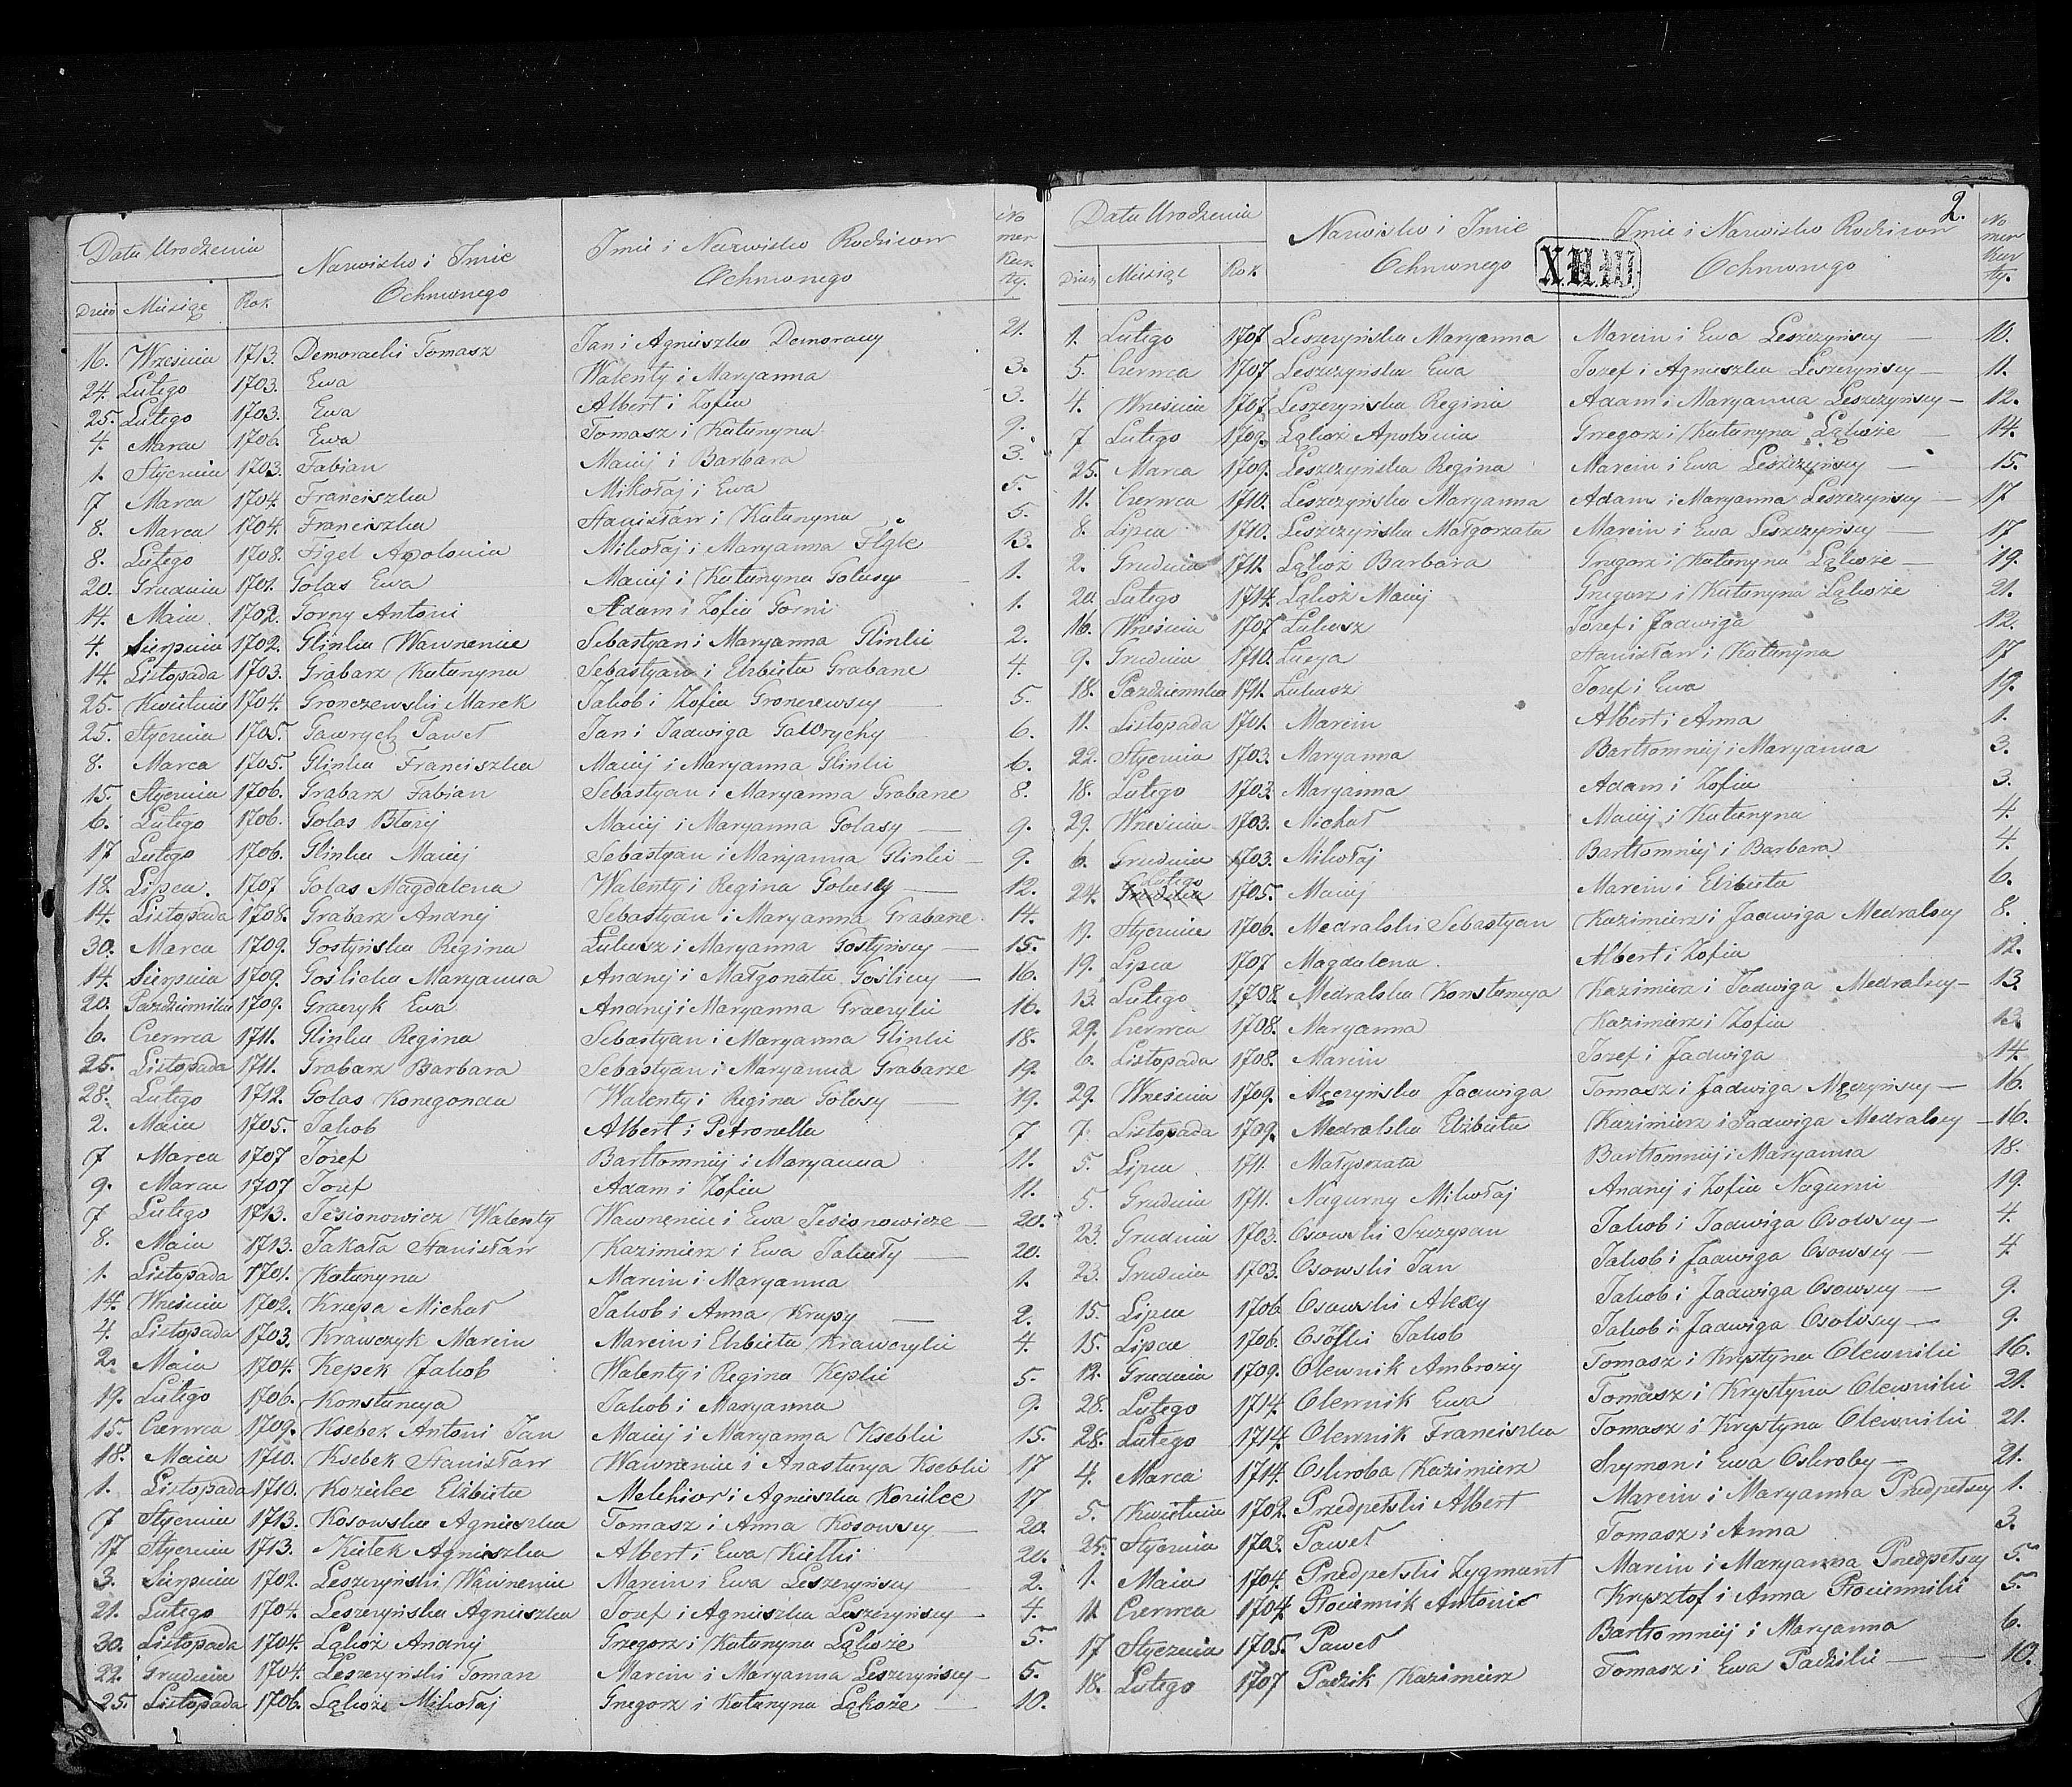 Data Urodzenia
Nazwisko i Imie Ochrzconego
Imie i Nazwisko Rodzicow Ochrzconego
No mer Kar ty.
Dzień Miesiąc Rok
16. Września 1713. Demoracki Tomasz Jan i Agnieszka Demoraccy 21.
24. Lutego 1703. Ewa Walenty i Maryanna 3.
25. Lutego 1703. Ewa Albert i Zofia 3.
4. Marca 1706. Ewa Tomasz i Katarzyna 9.
1. Stycznia 1703. Fabian Maciej i Barbara 3.
7 Marca 1704. Franciszka Mikołaj i Ewa 5.
8. Marca 1704. Franciszka Stanisław i Katarzyna 5.
8. Lutego 1708. Figel Apolonia Mikołaj i Maryanna Figle 13.
20. Grudnia 1701. Golas Ewa Maciej i Katarzyna Golasy 1.
14. Maia 1702. Gorny Antoni Adam i Zofia Gorni 1.
4. Sierpnia 1702. Glinka Wawrzeniec Sebastyan i Maryanna Glinki 2.
14. Listopada 1703. Grabarz Katarzyna Sebastyan i Elzbieta Grabarze 4.
25. Kwietnia 1704. Gronczewski Marek Jakob i Zofia Gronczewscy 5.
25. Stycznia 1705. Gawrych Paweł Jan i Jadwiga Gawrychy 6.
8. Marca 1705. Glinka Franciszka Maciej i Maryanna Glinki 6.
15. Stycznia 1706. Grabarz Fabian Sebastyan i Maryanna Grabarze 8.
6. Lutego 1706. Golas Błazej Maciej i Maryanna Golasy 9.
17 Lutego 1706. Glinka Maciej Sebastyan i Maryanna Glinki 9.
18. Lipca. 1707 Golas Magdalena Walenty i Regina Golasy 12.
14. Listopada 1708. Grabarz Andrzej Sebastyan i Maryanna Grabarze. 14.
30. Marca 1709. Gostyńska Regina Łukasz i Maryanna Gostyńscy 15.
14. Sierpnia 1709. Goślicka Maryanna Andrzej i Małgorzata Gośliccy 16.
20. Pazdziernika 1709. Graczyk Ewa Andrzej i Maryanna Graczyki 16.
6. Czerwca 1711. Glinka Regina Sebastyan i Maryanna Glinki 18.
25. Listopada 1711. Grabarz Barbara Sebastyan i Maryanna Grabarze 19.
28. Lutego 1712. Golas Konegonda Walenty i Regina Golasy 19.
2. Maia 1705. Jakob Albert i Petronella 7
7 Marca 1707 Jozef Bartłomniej i Maryanna 11.
9. Marca 1707 Jozef Adam i Zofia 11.
7 Lutego 1713. Jesionowicz Walenty Wawrzeniec i Ewa Jesionowicze 20.
8. Maia 1713. Jakała Stanisław Kazimierz i Ewa Jakały 20.
1. Listopada 1701. Katarzyna Marcin i Maryanna 1.
14. Września 1702. Krupa Michał Jakob i Anna Krupy 2.
4. Listopada 1703. Krawczyk Marcin Marcin i Elzbieta Krawczyki 4.
2. Maia 1704. Kepek Jakob Walenty i Regina Kepki 5.
19. Lutego 1706. Konstancya Jakob i Maryanna 9.
15. Czerwca 1709. Ksebek Antoni Jan Maciej i Maryanna Ksebki 15.
18. Maia 1710. Ksebek Stanisław Wawrzeniec i Anastazya Ksebki 17
1. Listopada 1710. Kozielec Elżbieta Melchior i Agnieszka Kozielce 17
7 Stycznia 1713. Kosowska Agnieszka Tomasz i Anna Kosowscy 20.
17 Stycznia 1713. Kiełek Agnieszka Albert i Ewa Kiełki 20.
3. Sierpnia 1702. Leszczyński Wawrzeniec Marcin i Ewa Leszczyńscy 2.
21. Lutego 1704. Leszczyńska Agnieszka Jozef i Agnieszka Leszczyńscy 4.
30. Listopada 1704. Ląkoż Andrzej Grzegorz i Katarzyna Ląkoże 5.
22. Grudnia 1704. Leszczyński Tomasz Marcin i Maryanna Leszczyńscy 5.
25. Listopada 1706. Ląkoż Mikołaj Grzegorz i Katarzyna Ląkoże 10.
2.
Data Urodzenia
Nazwisko i Imie Ochrzconego
Imie i Nazwisko Rodzicow Ochrzconego
No mer Kar ty.
Dzień Miesiąc Rok
1. Lutego 1707 Leszczyńska Maryanna Marcin i Ewa Leszczyńscy 10.
5. Czerwca 1707 Leszczyńska Ewa Jozef i Agnieszka Leszczyńscy 11.
4. Września 1707. Leszczyńska Regina Adam i Maryanna Leszczyńscy 12.
7 Lutego 1709. Ląkoż Apolonia Grzegorz i Katarzyna Ląkoże 14.
25. Marca 1709. Leszczyńska Regina Marcin i Ewa Leszczyńscy 15.
11. Czerwca 1710. Leszczyńska Maryanna Adam i Maryanna Leszczyńscy 17
8. Lipca 1710. Leszczyńska Małgorzata Marcin i Ewa Leszczyńscy 17
2. Grudnia 1711. Ląkoż Barbara Grzegorz i Katarzyna Ląkoże 19.
20. Lutego 1714. Ląkoż Maciej Grzegorz i Katarzyna Ląkoże 21.
16. Września 1707 Łukasz Jozef i Jadwiga 12.
9. Grudnia 1710. Lucya Stanisław i Katarzyna 17
18. Pazdziernika 1711. Łukasz Jozef i Ewa 19.
11. Listopada 1701. Marcin Albert i Anna 1.
22. Stycznia 1703. Maryanna Bartłomniej i Maryanna 3.
18. Lutego 1703. Maryanna Adam i Zofia 3.
29. Września 1703. Michał Maciej i Katarzyna 4.
6. Grudnia 1703. Mikołaj Bartłomniej i Barbara 4.
24. Lutego 1705. Maciej Marcin i Elżbieta 6.
19. Stycznia 1706. Medralski Sebastyan Kazimierz i Jadwiga Medralscy 8.
19. Lipca 1707 Magdalena Albert i Zofia 12.
13. Lutego 1708. Medralska Konstancya Kazimierz i Jadwiga Medralscy 13.
29. Czerwca 1708. Maryanna Kazimierz i Zofia 13.
6. Listopada 1708. Marcin Jozef i Jadwiga 14.
29. Września 1709. Męczyńska Jadwiga Tomasz i Jadwiga Męczyńscy 16.
7. Listopada 1709. Medralska Elżbieta Kazimierz i Jadwiga Medralscy 16.
5. Lipca 1711. Małgorzata Bartłomniej i Maryanna 18.
5. Grudnia 1711. Nagurny Mikołaj Andrzej i Zofia Nagurni 19.
23. Grudnia 1703. Osowski Szczepan Jakob i Jadwiga Osowscy 4.
23. Grudnia 1703. Osowski Jan Jakob i Jadwiga Osowscy 4.
15. Lipca 1706 Osowski Alexy Jakob i Jadwiga Osowscy 9.
15. Lipca 1706. Jakob Jakob i Jadwiga Osowscy 9.
12. Grudnia 1709. Olewnik Ambroży Tomasz i Krystyna Olewniki 16.
28. Lutego 1714. Olewnik Ewa Tomasz i Krystyna Olewniki 21.
28. Lutego 1714. Olewnik Franciszka Tomasz i Krystyna Olewniki 21.
4. Marca 1714. Oskroba Kazimierz Szymon i Ewa Oskroby 21.
5. Kwietnia 1702. Przedpełski Albert Marcin i Maryanna Przedpełscy 1.
25. Stycznia 1703. Paweł Tomasz i Anna 3.
1. Maia 1704. Przedpełski Zygmunt Marcin i Maryanna Przedpełscy 5.
11 Czerwca 1704. Płociennik Antoni Krysztof i Anna Płocienniki 5.
17 Stycznia 1705. Paweł Bartłomniej i Maryanna 6.
18. Lutego 1707 Padzik Kazimierz Tomasz i Ewa Padziki 10.